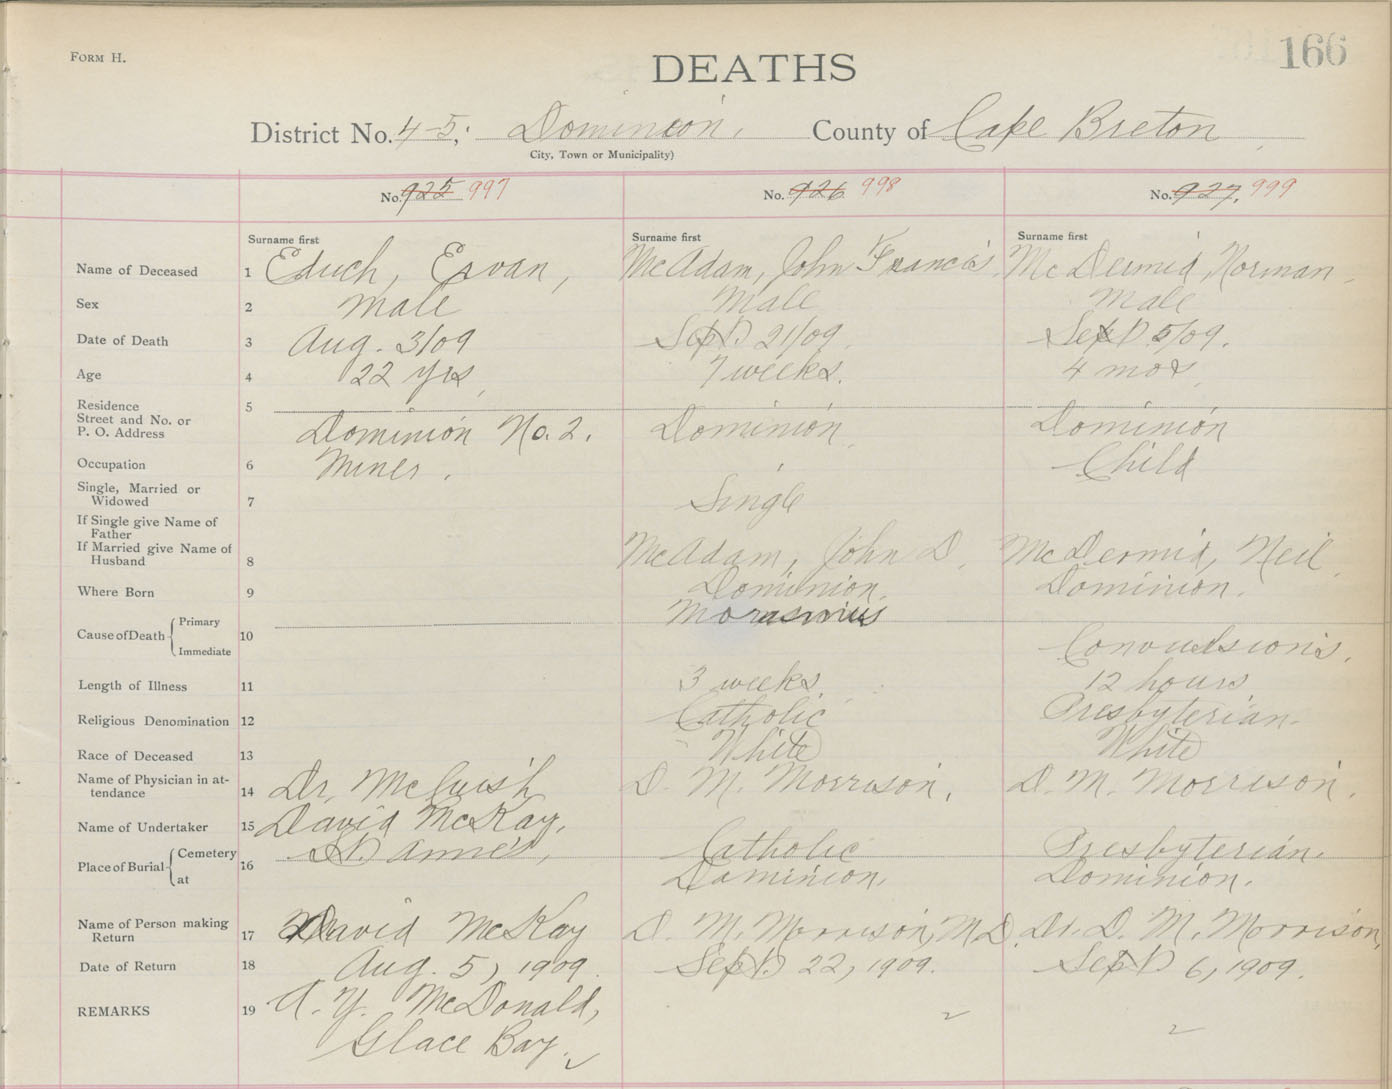 FORM H.
166
DEATHS
District No. 4-5; Dominion, County of Cape Breton
City, Town or Municipality)
No. 925 997
No. 926 998
No. 927, 999
Surname first
Surname first
Surname first
Name of Deceased 1 Educh, Ervan, McAdam, John Francis. McDermid, Norman.
Sex 2 Male Male Male
Date of Death 3 Aug. 3/09 Sept 21/09. Sept 5/09.
Age 4 22 yrs. 7 weeks. 4 mos.
Residence 5
Street and No. or
P. O. Address Dominion No. 2. Dominion. Dominion
Occupation 6 Miner. Child
Single, Married or
Widowed 7 Single
If Single give Name of
Father
If Married give Name of
Husband 8 McAdam, John D. McDermid, Neil.
Where Born 9 Dominion. Dominion.
Cause of Death 10 Primary Marasmus
Immediate Convulsions.
Length of Illness 11 3 weeks. 12 hours
Religious Denomination 12 Catholic Presbyterian.
Race of Deceased 13 White White
Name of Physician in at-
tendance 14 Dr. McCuish D. M. Morrison, D. M. Morrison.
Name of Undertaker 15 David McKay.
Place of Burial 16 Cemetery St. Anne's, Catholic Presbyterian.
at Dominion. Dominion.
Name of Person making
Return 17 David McKay D. M. Morrison, M.D. Dr. D. M. Morrison,
Date of Return 18 Aug. 5, 1909. Sept. 22, 1909. Sept 6, 1909.
REMARKS 19 A. Y. McDonald,
Glace Bay.